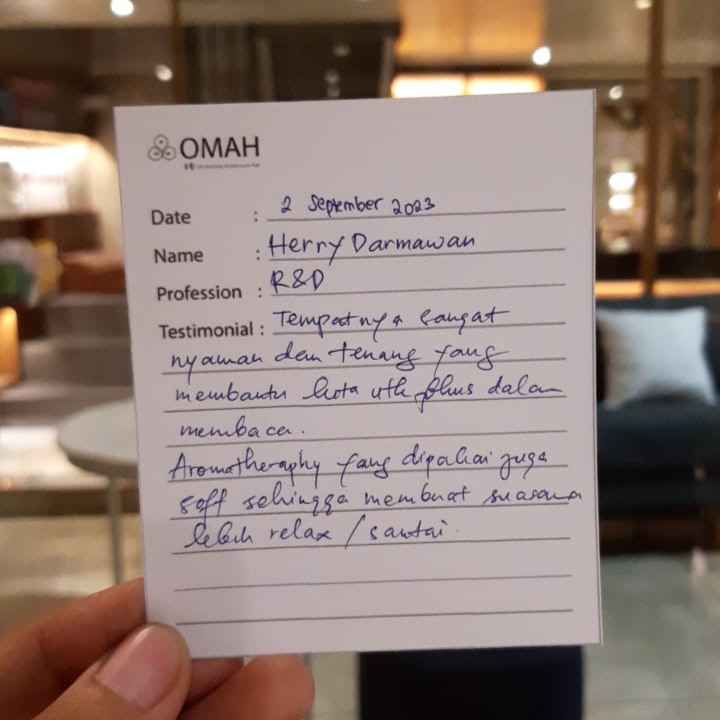 OMAH
Date : 2 September 2023
Name : Herry Darmawan
Profession : R&D
Testimonial : Tempatnya sangat
nyaman dan tenang yang
membantu kita utk fokus dalam
membaca.
Aromatheraphy yang dipakai juga
soft sehingga membuat suasana
lebih relax / santai.